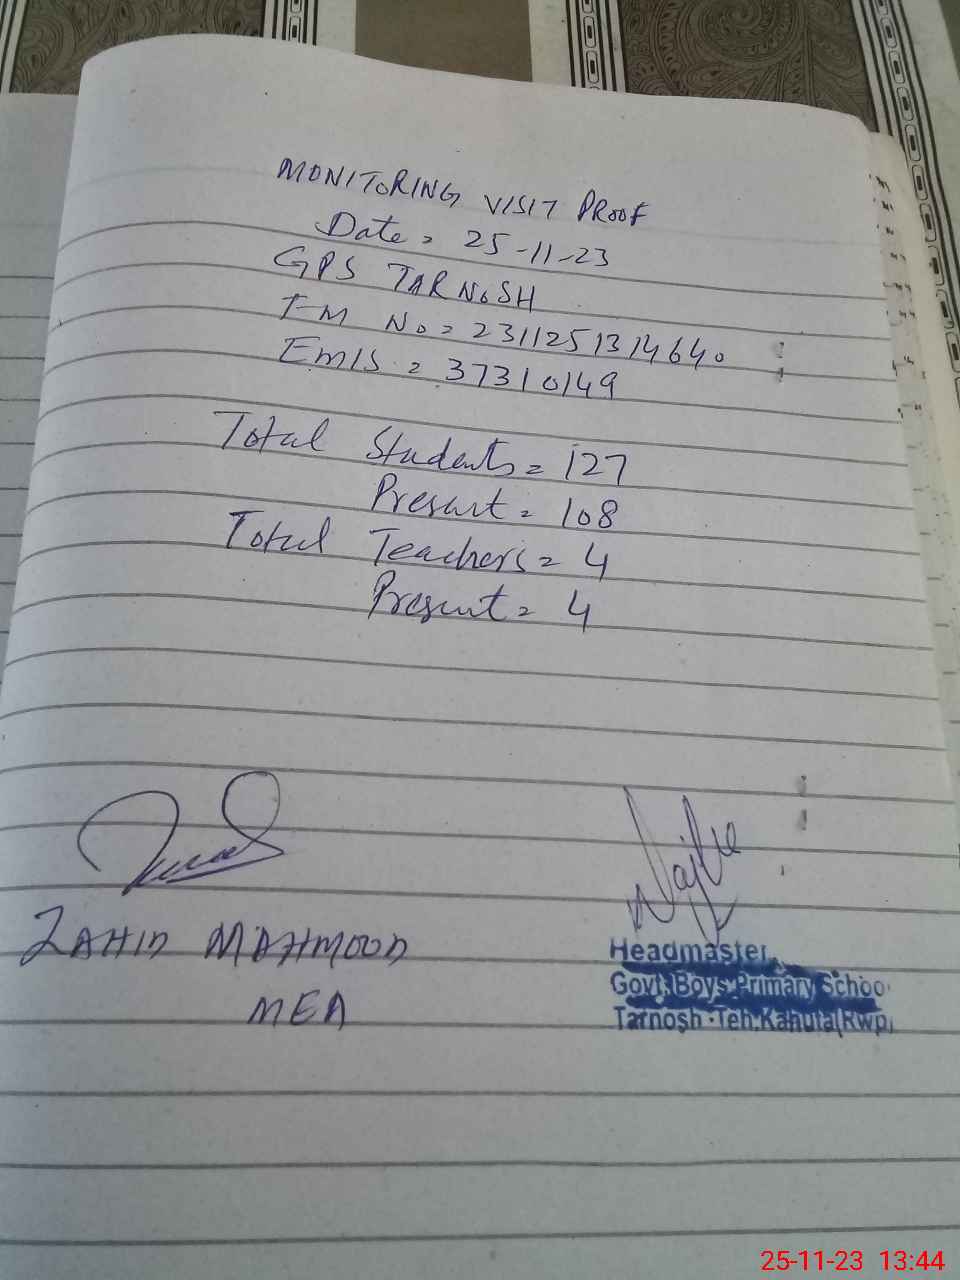 MONITORING VISIT PROOF
Date = 25-11-23
GPS TARNOSH
T-M No = 2311251314640
EMIS = 37310149
Total Students = 127
Present = 108
Total Teachers = 4
Present = 4
ZAHID MAHMOOD
MEA
Headmaster
Govt. Boys Primary Schoo
Tarnosh Teh. Kahuta (Rwp)
25-11-23 13:44